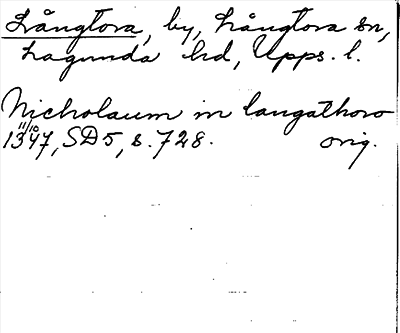 Långtora, by, Långtora sn,
Lagunda hd, Upps. l.
Nicholaum in langathoro
11/10
1347, SD5, s. 728. orig.